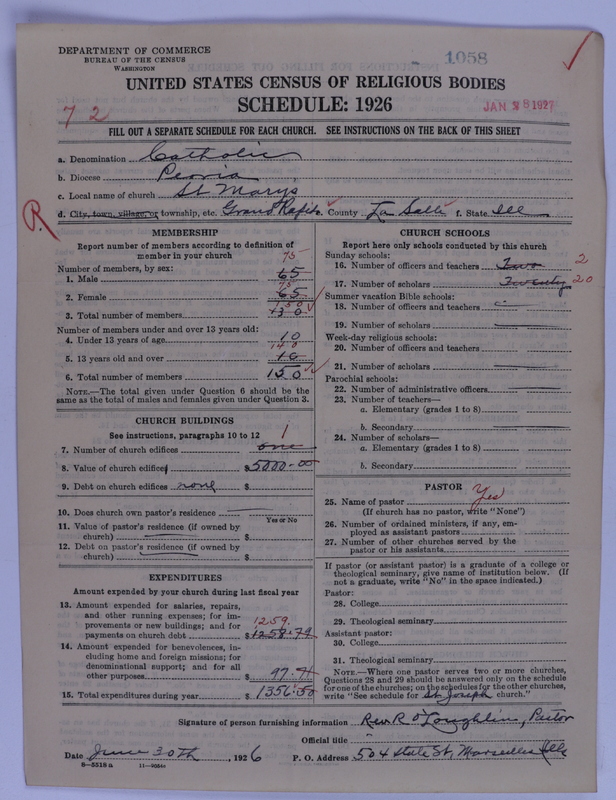 DEPARTMENT OF COMMERCE
BUREAU OF THE CENSUS
WASHINGTON
1058
UNITED STATES CENSUS OF RELIGIOUS BODIES
SCHEDULE: 1926
72
JAN 28 1927
FILL OUT A SEPARATE SCHEDULE FOR EACH CHURCH. SEE INSTRUCTIONS ON THE BACK OF THIS SHEET
a. Denomination Catholic
b. Diocese Peoria
c. Local name of church St Marys
R
d. City, town, village, or township, etc. Grand Rapids County La Salle f. State Ill
MEMBERSHIP
Report number of members according to definition of member in your church
Number of members, by sex:
1. Male 65 75
2. Female 65 75
3. Total number of members 130 150
Number of members under and over 13 years old:
4. Under 13 years of age 10
5. 13 years old and over 140
6. Total number of members 150
NOTE.—The total given under Question 6 should be the
same as the total of males and females given under Question 3.
CHURCH BUILDINGS
See instructions, paragraphs 10 to 12
7. Number of church edifices one 1
8. Value of church edifices $5000.00
9. Debt on church edifices none $
10. Does church own pastor's residence
Yes or No
11. Value of pastor's residence (if owned by
church) $
12. Debt on pastor's residence (if owned by
church) $
EXPENDITURES
Amount expended by your church during last fiscal year
13. Amount expended for salaries, repairs,
and other running expenses; for im-
provements or new buildings; and for
payments on church debt $1258.79 1259.
14. Amount expended for benevolences, in-
cluding home and foreign missions; for
denominational support; and for all
other purposes $ 97.71
15. Total expenditures during year $1356.50
CHURCH SCHOOLS
Report here only schools conducted by this church
Sunday schools:
16. Number of officers and teachers Two 2
17. Number of scholars Twenty 20
Summer vacation Bible schools:
18. Number of officers and teachers
19. Number of scholars
Week-day religious schools:
20. Number of officers and teachers
21. Number of scholars
Parochial schools:
22. Number of administrative officers
23. Number of teachers—
a. Elementary (grades 1 to 8)
b. Secondary
24. Number of scholars—
a. Elementary (grades 1 to 8)
b. Secondary
PASTOR
25. Name of pastor Yes
(If church has no pastor, write "None")
26. Number of ordained ministers, if any, em-
ployed as assistant pastors
27. Number of other churches served by the
pastor or his assistants
If pastor (or assistant pastor) is a graduate of a college or
theological seminary, give name of institution below. (If
not a graduate, write "No" in the space indicated.)
Pastor:
28. College
29. Theological seminary
Assistant pastor:
30. College
31. Theological seminary
NOTE.—Where one pastor serves two or more churches,
Questions 28 and 29 should be answered only on the schedule
for one of the churches; on the schedules for the other churches,
write "See schedule for St Joseph church."
Signature of person furnishing information Rev. R O'Loughlin, Pastor
Official title "
Date June 30th, 1926 P. O. Address 504 State St, Marseilles Ills
8—5518 a